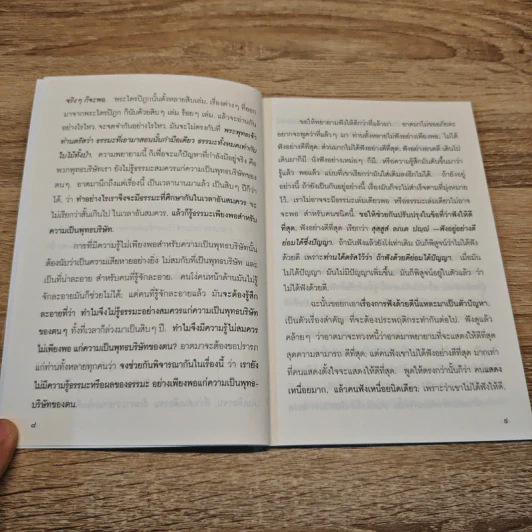 จริงๆ ก็จะพอ. พระไตรปิฎกนั้นตั้งหลายสิบเล่ม, เรื่องต่างๆ ที่ออก
มาจากพระไตรปิฎก ก็มีนับด้วยสิบๆ เล่ม ร้อยๆ เล่ม, แล้วจะอ่านกัน
อย่างไรไหว, จะจดจำกันอย่างไรไหว. มันจะไม่ตรงกับที่ พระพุทธเจ้า
ท่านตรัสว่า ธรรมะที่เอามาสอนนั้นกำมือเดียว ธรรมะทั้งหมดเท่ากับ
ใบไม้ทั้งป่า. ความพยายามนี้ ก็เพื่อจะแก้ปัญหาที่กำลังมีอยู่จริง คือ
พวกพุทธบริษัทเรา ยังไม่รู้ธรรมะสมควรแก่ความเป็นพุทธบริษัทของ
ตนๆ. อาตมานึกถึงแต่เรื่องนี้ เป็นเวลานานมาแล้ว เป็นสิบๆ ปีก็ว่า
ได้, ว่า ทำอย่างไรเราจึงจะมีธรรมะที่ศึกษากันในเวลาอันสมควร จะ
ไม่เรียกว่าสั้นเกินไป ในเวลาอันสมควร. แล้วก็รู้ธรรมะเพียงพอสำหรับ
ความเป็นพุทธบริษัท.
การที่มีความรู้ไม่เพียงพอสำหรับความเป็นพุทธบริษัทนั้น
ต้องนับว่าเป็นความเสียหายอย่างยิ่ง ไม่สมกับที่เป็นพุทธบริษัท และ
เป็นที่น่าละอาย สำหรับคนที่รู้จักละอาย. คนโง่คนหน้าด้านมันไม่รู้
จักละอายมันก็ช่วยไม่ได้; แต่คนที่รู้จักละอายแล้ว มันจะต้องรู้สึก
ละอายที่ว่า ทำไมจึงไม่รู้ธรรมะอย่างสมควรแก่ความเป็นพุทธบริษัท
ของตนๆ ทั้งที่เวลาก็ล่วงมาเป็นสิบๆ ปี. ทำไมจึงมีความรู้ไม่สมควร
ไม่เพียงพอ แก่ความเป็นพุทธบริษัทของตน? อาตมาจะต้องขอปรารภ
แก่ท่านทั้งหลายทุกคนว่า จงช่วยกันพิจารณากันในเรื่องนี้ ว่า เรายัง
ไม่มีความรู้ธรรมะหรือผลของธรรมะ อย่างเพียงพอแก่ความเป็นพุทธ-
บริษัทของตน.
๘
ขอให้พยายามฟังให้ดีกว่าที่แล้วมา. อาตมาไม่ขออภัยดะ
อยากจะพูดว่าที่แล้วๆ มา ท่านทั้งหลายไม่ฟังอย่างเพียงพอ, ไม่ได้
ฟังอย่างดีที่สุด, ส่วนมากไม่ได้ฟังอย่างดีที่สุด,
เดินมาก็มี นั่งฟังอย่างเหม่อๆ ก็มี. หรือความรู้สึกมันดันขึ้นมาว่า
รู้แล้ว พอแล้ว แบบที่เขาเรียกว่ามันใส่เติมลงอีกไม่ได้. ถ้ายังอยู่
อย่างนี้ ถ้ายังเป็นกันอยู่อย่างนี้ เรื่องมันก็จะไม่สำเร็จตามที่มุ่งหมาย
ไว้. เราไม่อาจจะมีธรรมะเล่มเดียวพอ หรือธรรมะเล่มเดียวมันไม่อาจ
จะพอ สำหรับคนชนิดนี้. ขอให้ช่วยกันปรับปรุงในข้อที่ว่าฟังให้ดี
ที่สุด, ฟังอย่างดีที่สุด เรียกว่า สุสฺสูสํ ลภเต ปญฺญํ —ฟังอยู่อย่างดี
ย่อมได้ซึ่งปัญญา. ถ้ามันฟังแล้วยังโง่เท่าเดิม มันก็พิสูจน์ว่าไม่ได้ฟัง
ด้วยดี. เพราะท่านได้ตรัสไว้ว่า ถ้าฟังด้วยดีย่อมได้ปัญญา. เมื่อมัน
ไม่ได้ปัญญา มันไม่มีปัญญาเพิ่มขึ้น, มันก็พิสูจน์อยู่ในตัวแล้ว ว่า
ไม่ได้ฟังด้วยดี.
ฉะนั้นขอยกเอาเรื่องการฟังด้วยดีนี่แหละมาเป็นตัวปัญหา,
เป็นตัวเรื่องสำคัญ ที่จะต้องประพฤติกระทำกันต่อไป. ฟังดูแล้ว
คล้ายๆ ว่าอาตมาจะทวงหนี้ว่าอาตมาพยายามที่จะแสดงให้ดีที่สุด
สุดความสามารถ ดีที่สุด, แต่คนฟังเขาไม่ได้ฟังอย่างดีที่สุด มากเท่า
ที่คนแสดงตั้งใจจะแสดงให้ดีที่สุด. พูดให้ตรงกว่านั้นก็ว่า คนแสดง
เหนื่อยมาก, แล้วคนฟังเหนื่อยนิดเดียว; เพราะว่าเขาไม่ได้ฟังให้ดี.
๙